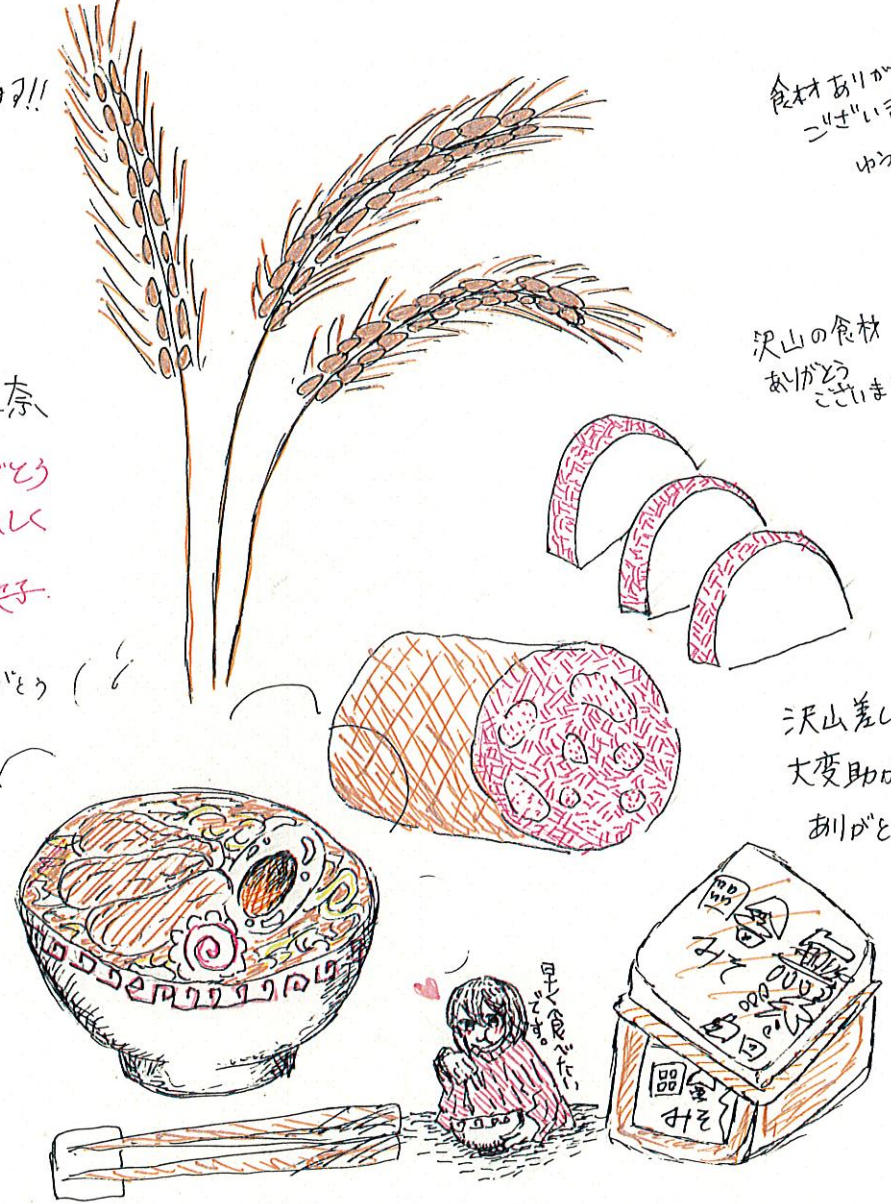 ます!!
食材ありが
ございま
ゆう
沢山の食材
ありがとう
ございま
奈
がとう
しく
子
がとう
沢山差し
大変助か
ありがと
早く食べたい
です。
みそ
みそ